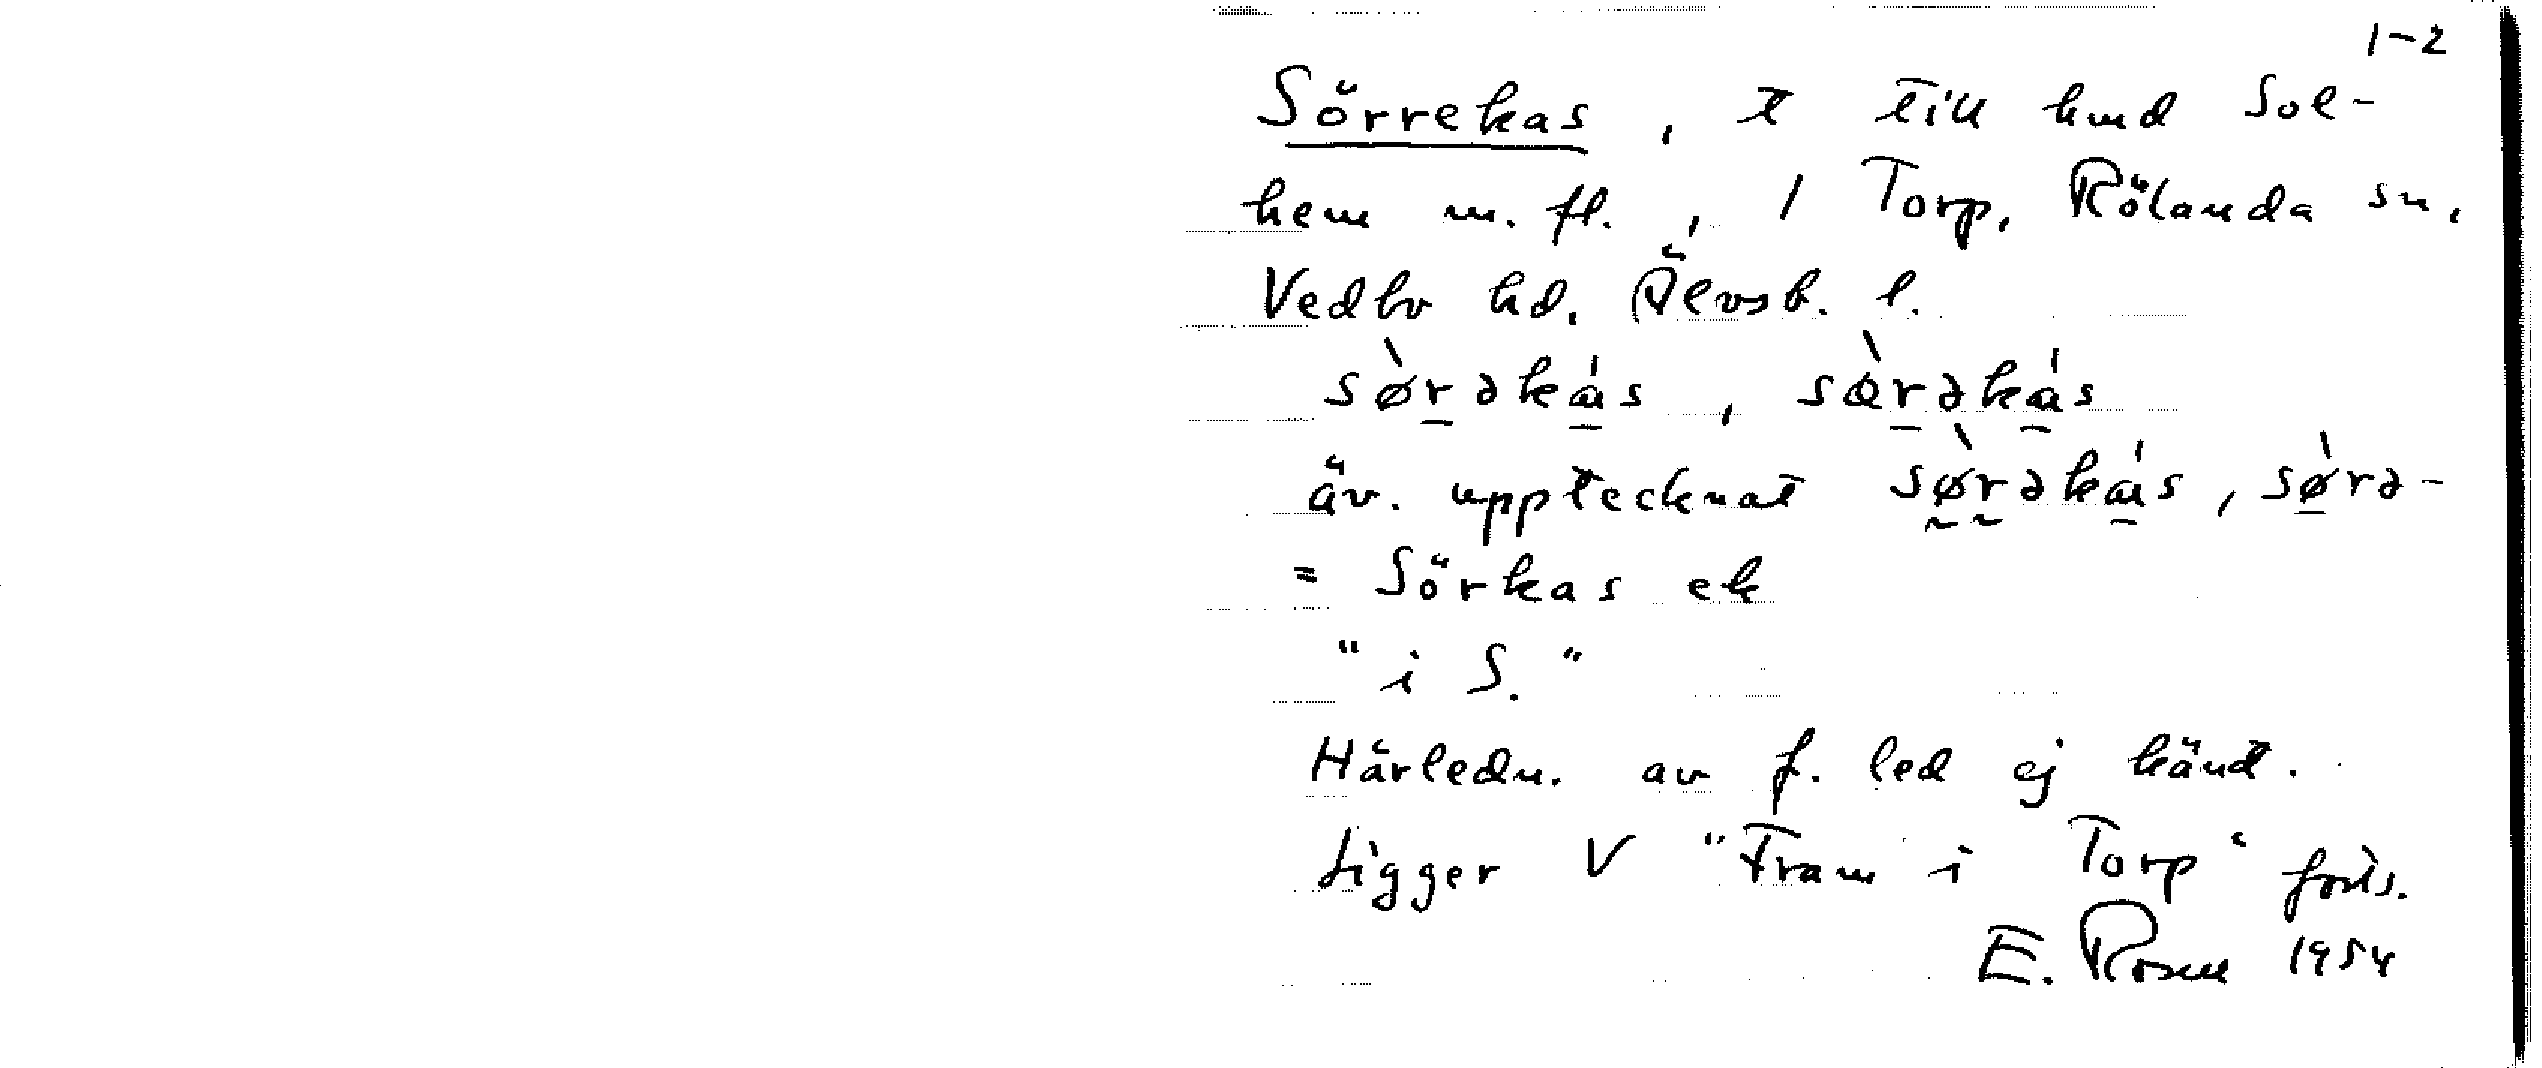 1-2
Sörrekas, t till hmd Sol-
hem m. fl., 1 Torp, Rölanda sn,
Vedbo hd, Älvsb. l.
sø̀r̠əkás, sɑ̀r̠əkás
äv. upptecknat sø̰̀r̰əkás, sø̠̀rə-
= Sörkas ek
"i S."
Härledn. av f. led ej känd.
Ligger V "Fram i Torp" forts.
E. Rosen 1954